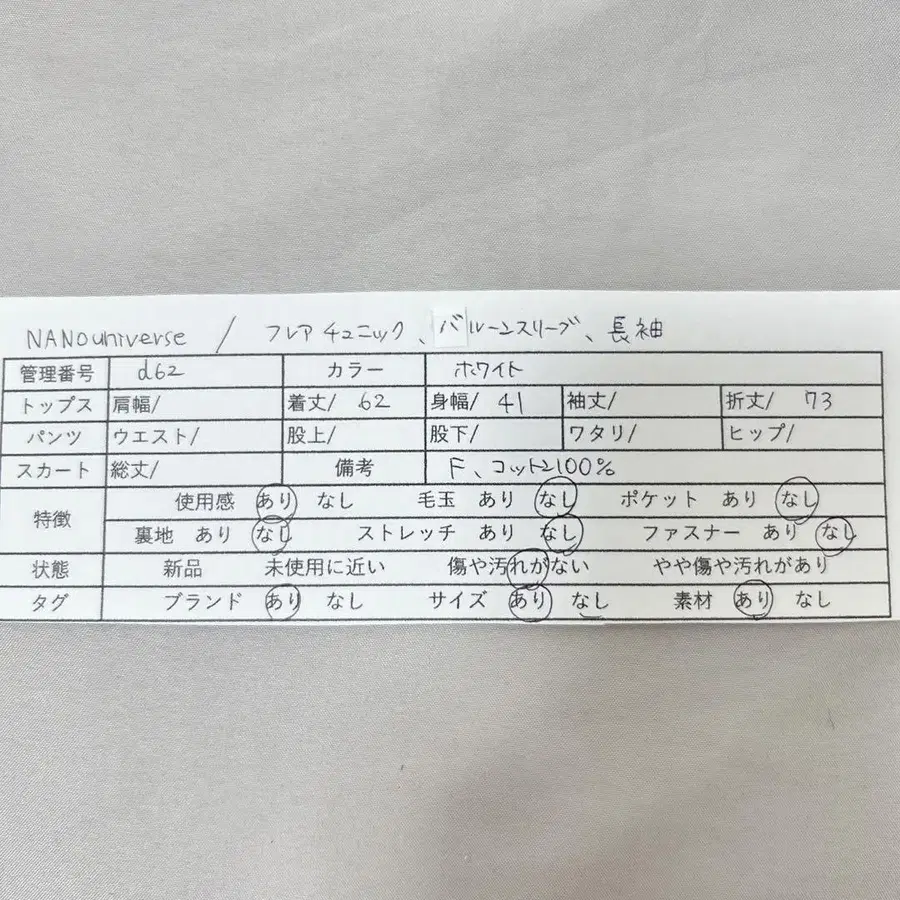 NANouniverse / フレアチュニック、バルーンスリーブ、長袖
管理番号 d62 カラー ホワイト
トップス 肩幅/ 着丈/ 62 身幅/ 41 袖丈/ 折丈/ 73
パンツ ウエスト/ 股上/ 股下/ ワタリ/ ヒップ/
スカート 総丈/ 備考 F、コットン100%
特徴 使用感 あり なし 毛玉 あり なし ポケット あり なし
裏地 あり なし ストレッチ あり なし ファスナー あり なし
状態 新品 未使用に近い 傷や汚れがない やや傷や汚れがあり
タグ ブランド あり なし サイズ あり なし 素材 あり なし